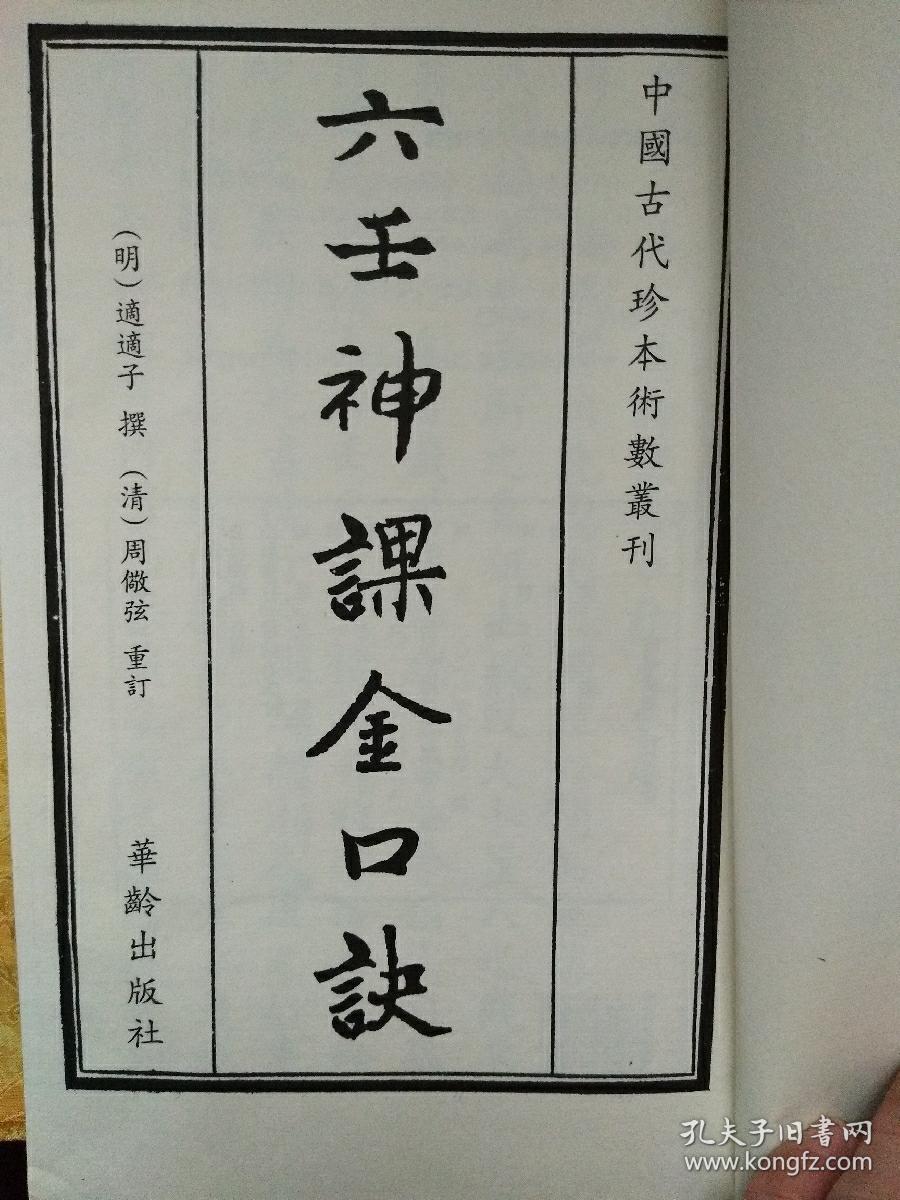 中國古代珍本術數叢刊
六壬神課金口訣
（明）適適子 撰 （清）周儆弦 重訂
華齡出版社
孔夫子旧書网
www.kongfz.com